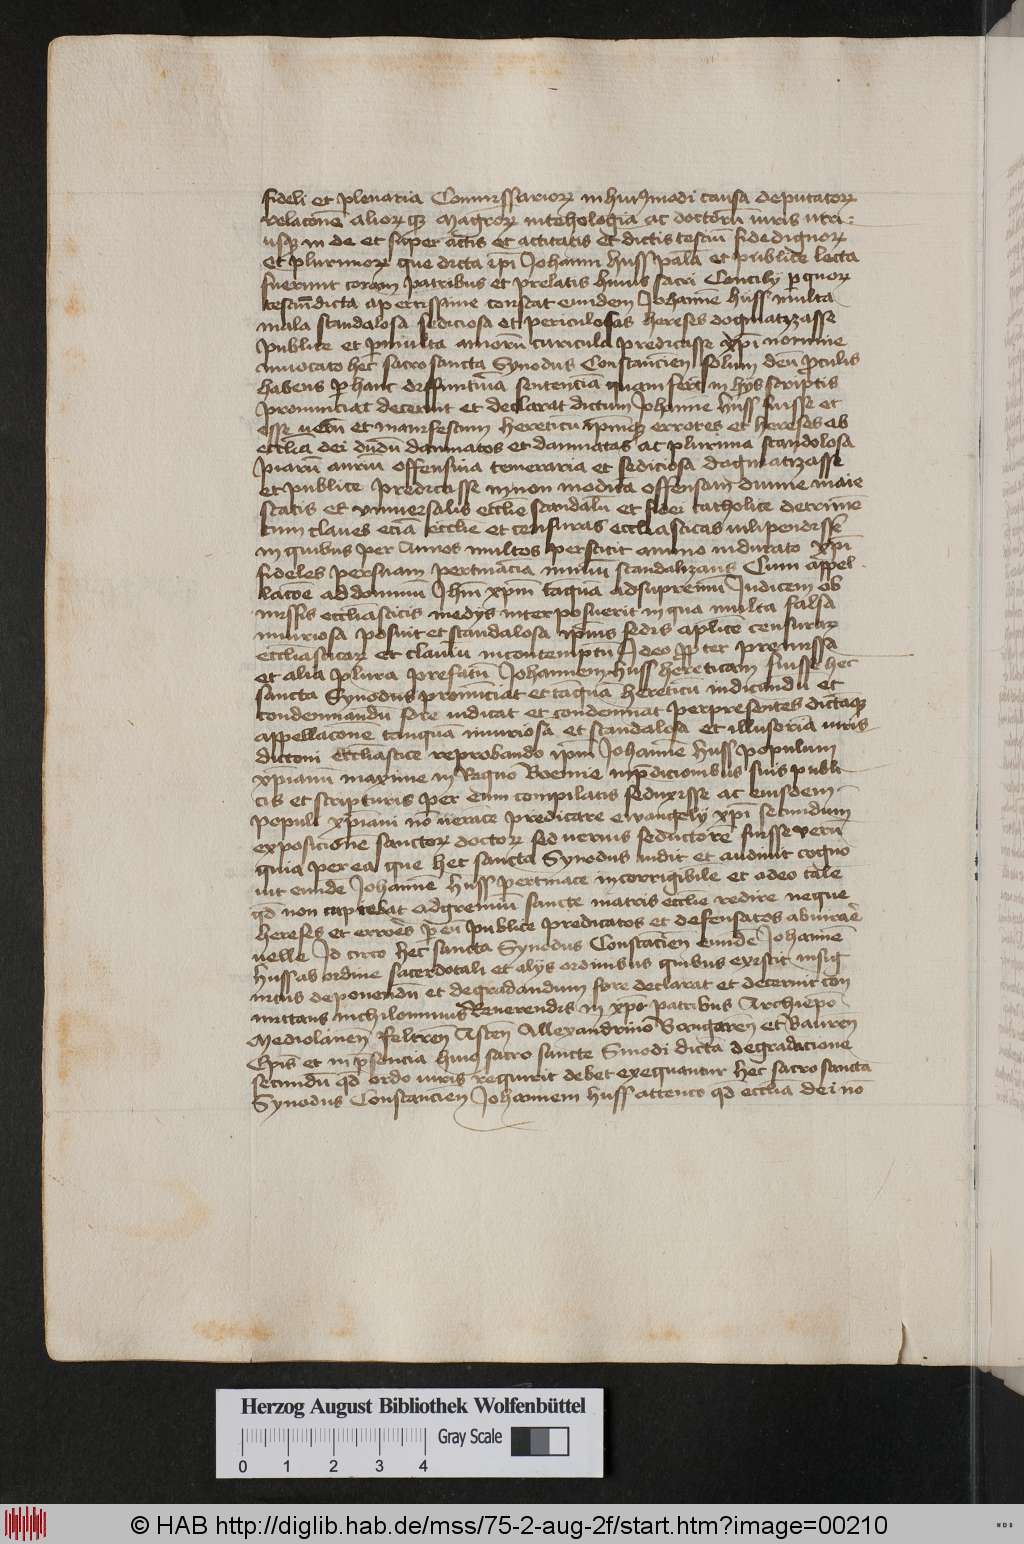 fideli et plenaria Commissarioꝝ in huiꝰmodi causa deputatoꝝ
relacōne alioꝝ qꝫ Magr̄oꝝ in tehologia ac doctorū iuris utri-
usqꝫ in de et super actis et actitatis et dictis testiū fidedignoꝝ
et plurimoꝝ que dicta ip̄i Johanni Huss palā et publice lecta
fuerunt coram patribus et prelatis huius sacri Concilij p quoꝝ
testiū dicta apertissime constat eundem Johannē Huss multa
mala scandalosa sediciosa et periculosas hereses dogmatizasse
publice et p multa annorū curicula predicasse xp̄i nomine
inuocato hec sacrosancta Synodus Constancien̄ solum deū p̄ oculis
habens p hanc diffinitiuā sentenciā quam fert in hijs scriptis
pronunciat decernit et declarat dictum Johannē Huss fuisse et
esse uerū et manifestum hereticū ip̄mqꝫ errores et hereses ab
eccl̄ia dei dūdū damnatos et damnatas ac plurima scandolosa
piarū auriū offensiua temeraria et sediciosa dogmatizasse
et publice predicasse in non modicā offensam diuine maie
statis et vniuersalis eccl̄ie scandalū et fidei catholice detrimē
tum claues eciā eccl̄ie et censuras ecclesiasticas uilipendisse
in quibus per Annos multos perstitit animo indurato xp̄i
fideles per suam pertinaciā nimiū scandalizans Cum appel
lacōe ad dominū Jh̄m xp̄m tāquā ad supremū Judicem ob
missis eccl̄iasticis medijs interposuerit in qua multa falsa
iniuriosa posuit et scandalosa ip̄ius sedis apl̄ice censuraꝝ
eccl̄iasticaꝝ et clauiū in contemptū Adeo ꝓpter premissa
et alia plura prefatū Johannem Huss hereticam fuisse hec
sancta Synodus pronūciat et tāquā hereticū iudicandū et
condemnandū fore iudicat et condemnat per presentes dictāqꝫ
appellacōne tanquā iniuriosa et scandalosa et illusoriā iuris
dictoni eccl̄iastice reprobando ip̄m Johannē Huss populum
xp̄ianū maxime in Regno Boemie in p̄dicionibus suis publi
cis et scripturis per eum compilatis seduxisse ac eiusdem
populi xp̄iani nō uerace predicare ewangelij xp̄i secundum
exposicionē sanctoꝝ doctoꝝ sed uerius seductorē fuisse verū
quia per ea que hec sancta Synodus uidit et audiuit cogno
uit eundē Johannē Huss pertinacē incorrigibile et adeo tale
qd̄ non cupiebat ad gremiū sancte matris eccl̄ie redire neque
hereses et errores p eū publice predicatos et defensatos abiurare
uelle Id circo hec sancta Synodus Constacien̄ eundē Johannē
Huss ab ordine sacerdotali et alijs ordinibus quibus existit insig
nitus deponendū et degradandum fore declarat et decernit com
mittans nichilominus Reuerendis in xp̄o patribus Archiepō
Mediolanen̄ Feltren̄ Asten̄ Allexandrino Bangoren̄ et Bauren̄
Ep̄is et in p̄sencia huiꝰ sacro sancte Sinodi dictā degradacione
secundū qd̄ ordo iuris requirit debet exequantur hec sacrosancta
Synodus Constancien̄ Johannem Huss attento qd̄ eccl̄ia dei nō
Herzog August Bibliothek Wolfenbüttel
Gray Scale
0 1 2 3 4
© HAB http://diglib.hab.de/mss/75-2-aug-2f/start.htm?image=00210